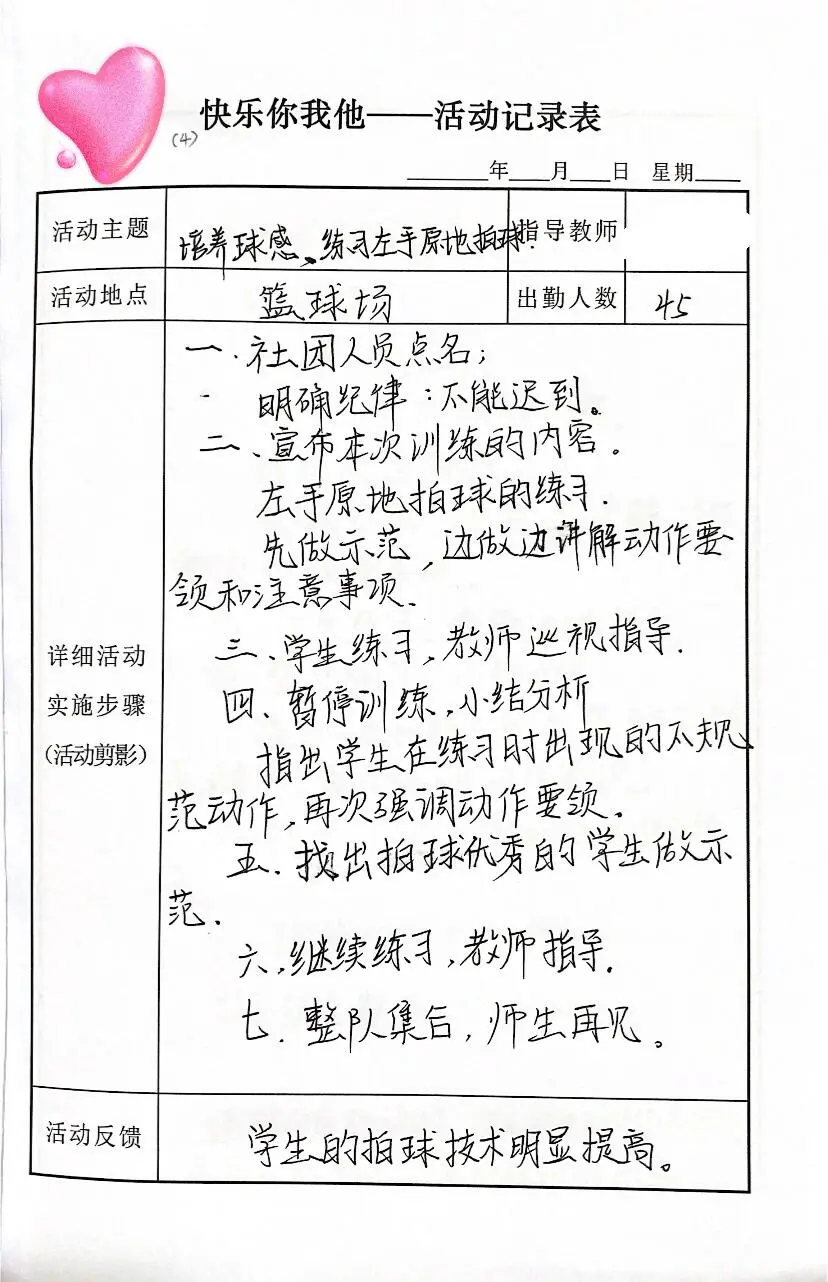 快乐你我他——活动记录表
(4)
年 月 日 星期
活动主题 培养球感、练习左手原地拍球. 指导教师
活动地点 篮球场 出勤人数 45
详细活动
实施步骤
(活动剪影)
一.社团人员点名;
明确纪律:不能迟到。
二、宣布本次训练的内容。
左手原地拍球的练习.
先做示范,边做边讲解动作要
领和注意事项.
三、学生练习,教师巡视指导.
四、暂停训练,小结分析
指出学生在练习时出现的不规
范动作,再次强调动作要领。
五.找出拍球优秀的学生做示
范.
六.继续练习,教师指导.
七.整队集合,师生再见。
活动反馈 学生的拍球技术明显提高。